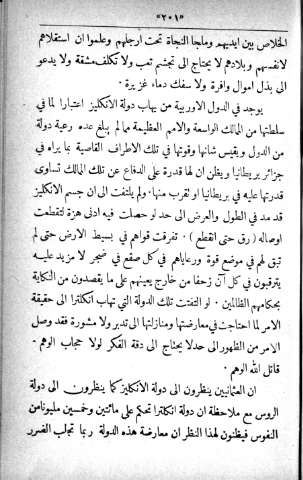 "٢٠١"
الخلاص بين ايديهم وملجأ النجاة تحت ارجلهم وعلموا ان استقلالهم
لانفسهم وبلادهم لا يحتاج الى تجشم تعب ولا تكلف مشقة ولا يدعو
الى بذل اموال وافرة ولا سفك دماء غزيرة .
يوجد في الدول الاوربية من يهاب دولة الانكليز اعتبارا لما في
سلطتها من المالك الواسعة والامم العظيمة مما لم يبلغ عده رعية دولة
من الدول ويقيس شانها وقوتها في تلك الاطراف القاصية بما يراه في
جزائر بريطانيا ويظن ان لها قدرة على الدفاع عن تلك المالك تساوى
قدرتها عليه في بريطانيا او تقرب منها. ولم يلتفت الى ان جسم الانكليز
قد مد في الطول والعرض الى حد لو حصلت فيه ادنى هزة لتقطعت
اوصاله ( رق حتى انقطع ) . تفرقت قواهم في بسيط الارض حتى لم
تبق لهم في موضع قوة ورعاياهم في كل صقع في ضجر لا مزيد عليه
يترقبون في كل آن زحفا من خارج يعينهم على ما يقصدون من النكاية
بحكامهم الظالمين . لو التفتت تلك الدولة التي تهاب انكلترا الى حقيقة
الامر لما احتاجت في معارضتها ومنازلتها الى تدبر ولا مشورة فقد وصل
الامر من الظهور الى حد لا يحتاج الى دقة الفكر لولا حجاب الوهم .
قاتل الله الوهم .
ان العثمانيين ينظرون الى دولة الانكليز كما ينظرون الى دولة
الروس مع ملاحظة ان دولة انكلترا تحكم على مائتين وخمسين مليونا من
النفوس فيظنون لهذا النظر ان معارضة هذه الدولة ربما تجلب الضرر